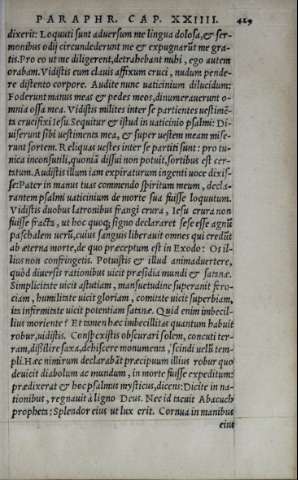 PARAPHR. CAP. XXIIII. 429
dixerit: Loquuti sunt aduersum me lingua dolosa, & ser-
monibus odij circundederunt me & expugnarũt me gra-
tis. Pro eo ut me diligerent, detrahebant mihi, ego autem
orabam. Vidistis eum clauis affixum cruci, nudum pende-
re distento corpore. Audite nunc uaticinium dilucidum:
Foderunt manus meas & pedes meos, dinumerauerunt o-
mnia ossa mea. Vidistis milites inter se partientes uestimẽ-
ta crucifixi Iesu. Sequitur & istud in uaticinio psalmi: Di-
uiserunt sibi uestimenta mea, & super uestem meam mise-
runt sortem. Reliquas uestes inter se partiti sunt: pro tu-
nica inconsutili, quoniã dissui non potuit, sortibus est cer-
tatum. Audistis illum iam expiraturum ingenti uoce dixis-
se: Pater in manus tuas commendo spiritum meum, decla-
rantem psalmi uaticinium de morte sua fuisse loquutum.
Vidistis duobus latronibus frangi crura, Iesu crura non
fuisse fracta, ut hoc quoq; signo declararet se esse esse agnũ
paschalem uerũ, cuius sanguis liberauit omnes qui crediũt
ab æterna morte, de quo præceptum est in Exodo: Os il-
lius non confringetis. Potuistis & illud animaduertere,
quòd diuersis rationibus uicit præsidia mundi & satanæ.
Simplicitate uicit astutiam, mansuetudine superauit fero-
ciam, humilitate uicit gloriam, comitate uicit superbiam,
ita infirmitate uicit potentiam satanæ. Quid enim imbecil-
lius moriente? Et tamen hæc imbecillitas quantum habuit
robur, uidistis. Conspexistis obscurari solem, concuti ter-
ram, dissilire saxa, dehiscere monumenta, scindi uelũ tem-
pli. Hæc nimirum declarabãt præcipuum illius robur quo
deuicit diabolum ac mundum, in morte fuisse expeditum:
prædixerat & hoc psalmus mysticus, dicens: Dicite in na-
tionibus, regnauit à ligno Deus. Nec id tacuit Abacuch
propheta: Splendor eius ut lux erit. Cornua in manibus
eius